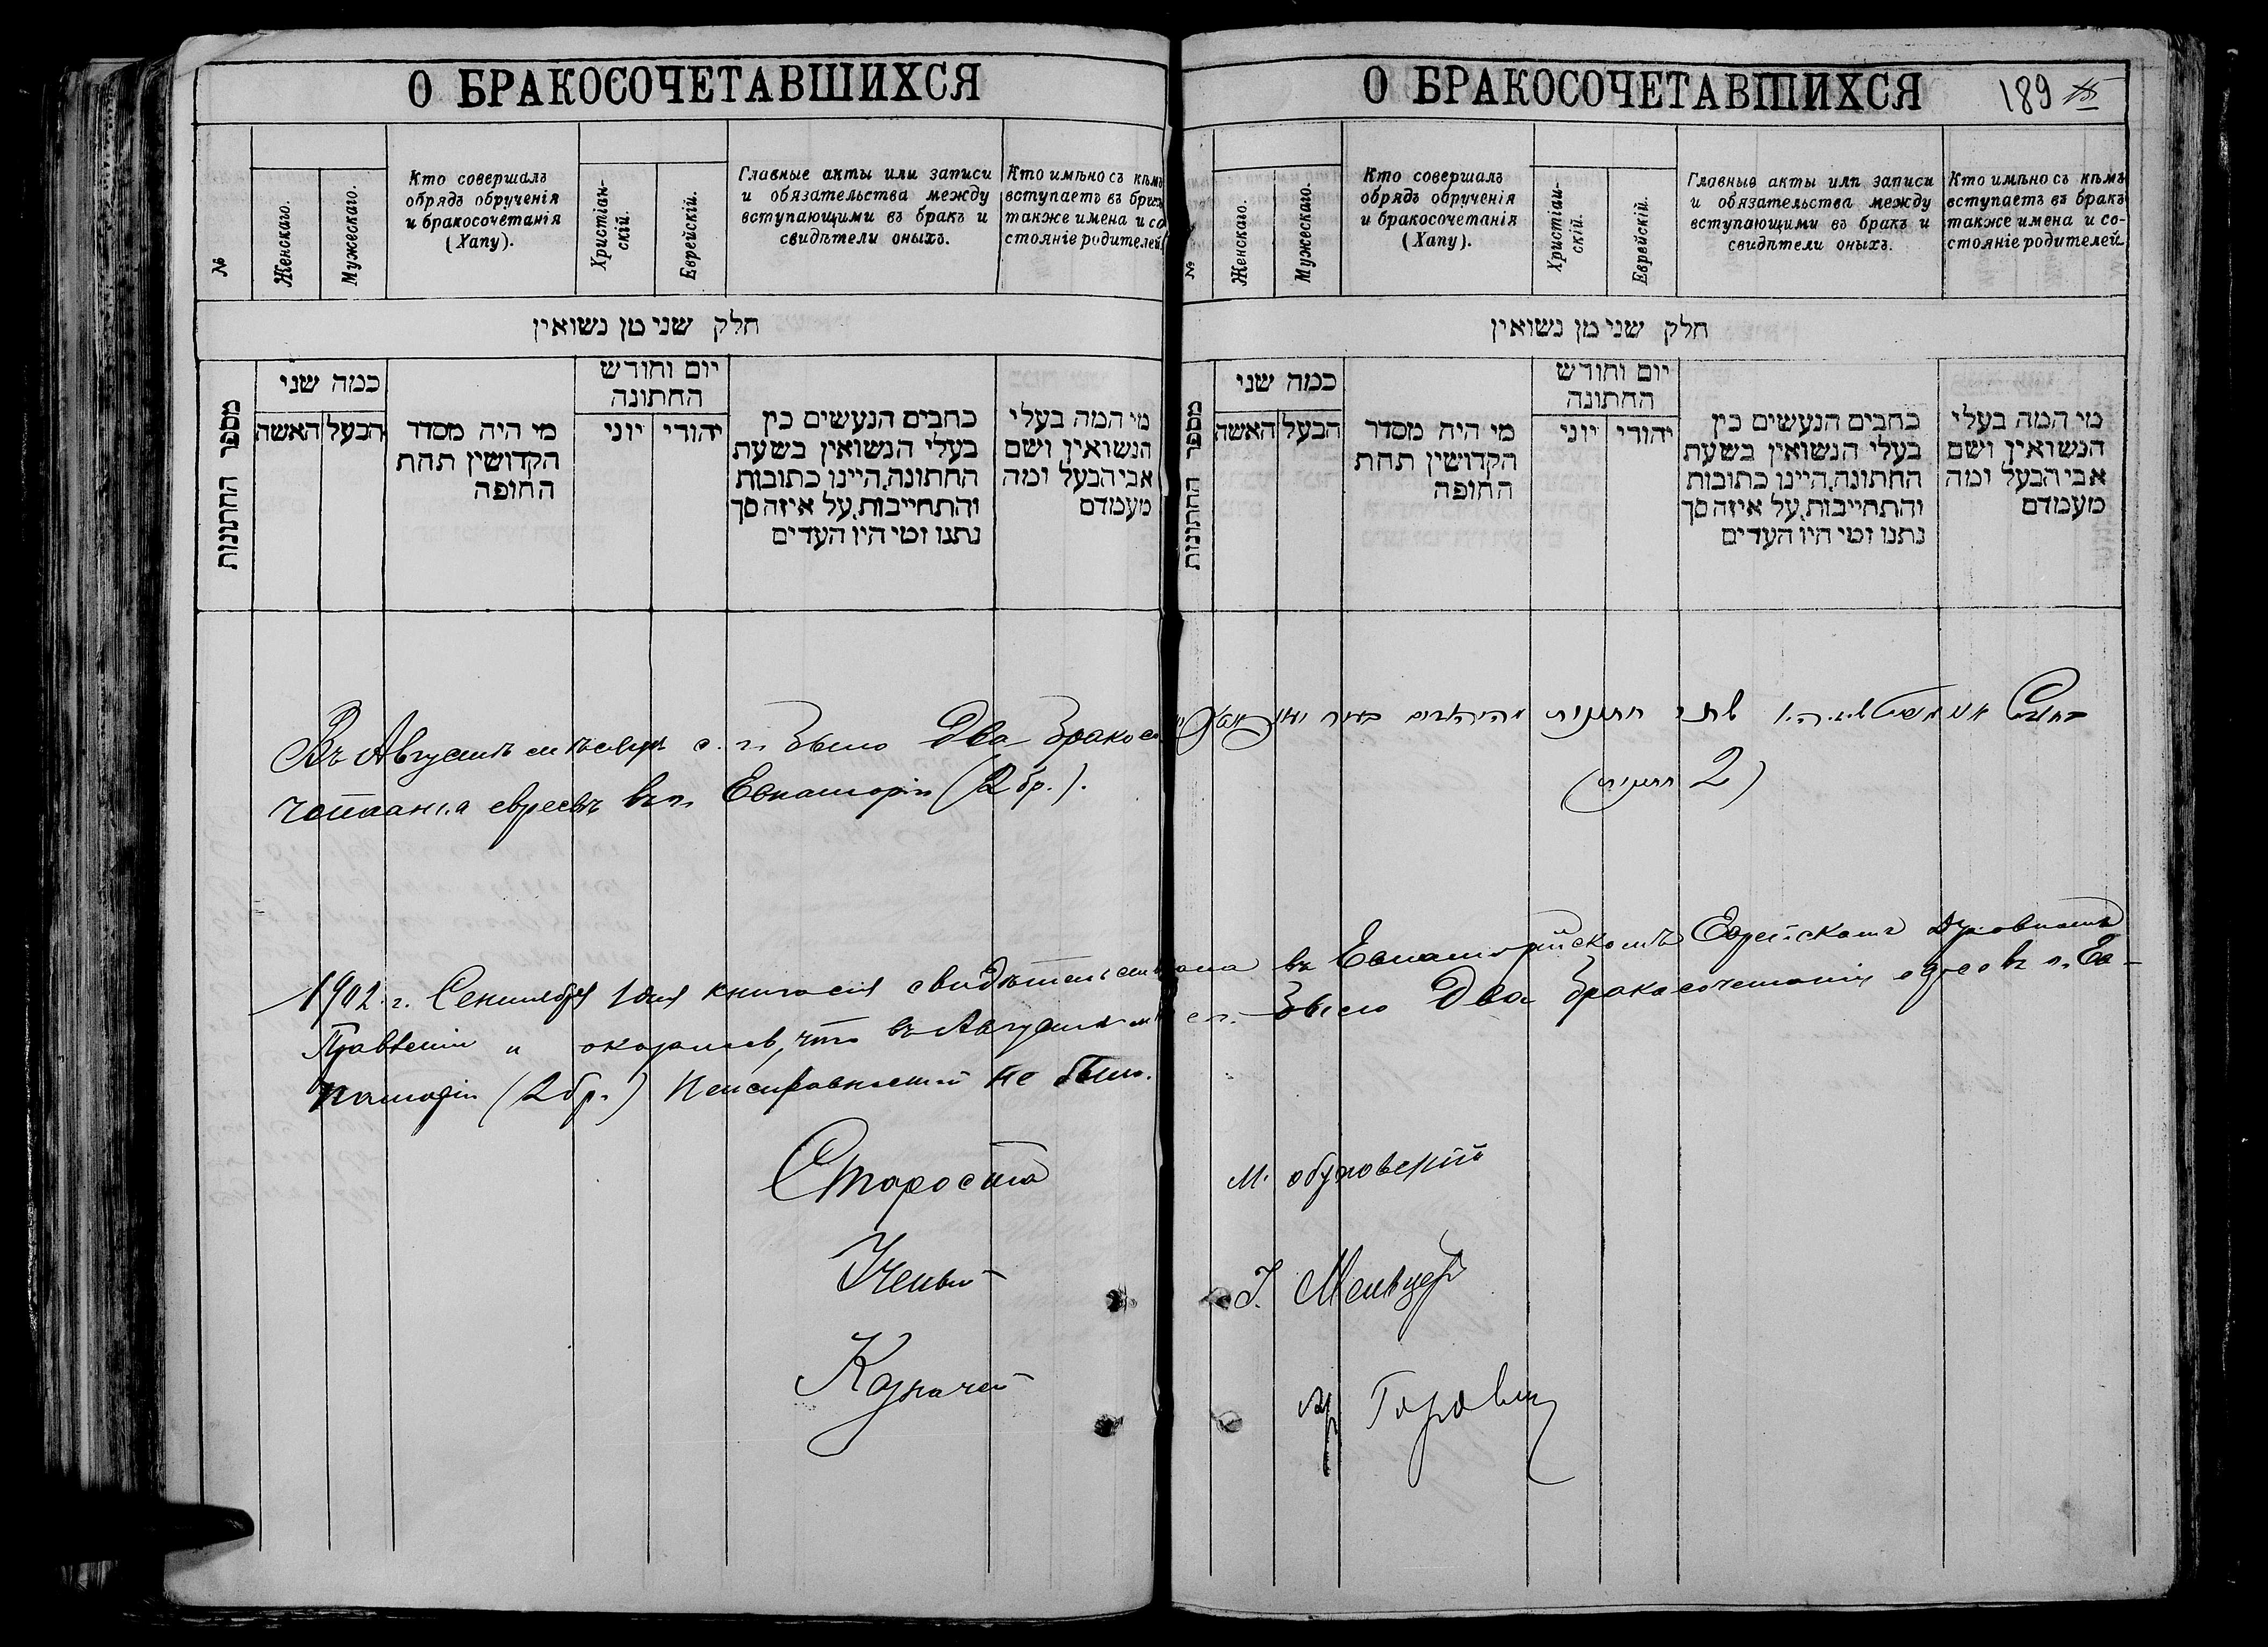 О БРАКОСОЧЕТАВШИХСЯ
№
Женскаго.
Мужескаго.
Кто совершалъ
обрядъ обрученія
и бракосочетанія
(Хапу).
Христіан-
скій.
Еврейскій.
Главные акты или записи
и обязательства между
вступающими въ бракъ и
свидѣтели оныхъ.
Кто имѣно съ кѣмъ
вступаетъ въ брак
также имена и со
стояніе родителей
חלק שני מן נשואין
מספר החתונות
כמה שני
האשה
הבעל
מי היה מסדר
הקדושין תחת
החופה
יום וחודש
החתונה
יוני
יהודי
כתבים הנעשים בין
בעלי הנשואין בשעת
החתונה, היינו כתובות
והתחייבות, על איזה סך
נתנו ומי היו העדים
מי המה בעלי
הנשואין ושם
אבי הבעל ומה
מעמדם
Въ Августѣ мѣсяцѣ с. г. было Два бракосо
четанія евреевъ въ г. Евпаторіи (2 бр.).
О БРАКОСОЧЕТАВШИХСЯ
189
№
Женскаго.
Мужескаго.
Кто совершалъ
обрядъ обрученія
и бракосочетанія
(Хапу).
Христіан-
скій.
Еврейскій.
Главные акты или записи
и обязательства между
вступающими въ бракъ и
свидѣтели оныхъ.
Кто имѣно съ кѣмъ
вступаетъ въ бракъ
также имена и со-
стояніе родителей
חלק שני מן נשואין
מספר החתונות
כמה שני
האשה
הבעל
מי היה מסדר
הקדושין תחת
החופה
יום וחודש
החתונה
יוני
יהודי
כתבים הנעשים בין
בעלי הנשואין בשעת
החתונה, היינו כתובות
והתחייבות, על איזה סך
נתנו ומי היו העדים
מי המה בעלי
הנשואין ושם
אבי הבעל ומה
מעמדם
שתי חתונות מהיהודים בעיר
(2 חתונות)
1902 г. Сентября 1 дня книга сія свидѣтельствована въ Евпаторійскомъ Еврейскомъ Духовномъ
Правленіи и оказалось, что въ Августѣ мѣс. было Два бракосочетанія въ г. Ев-
паторіи (2 бр.) Неисправностей не было.
Староста М. Обуховскій
Ученый
Казначей Горовиц